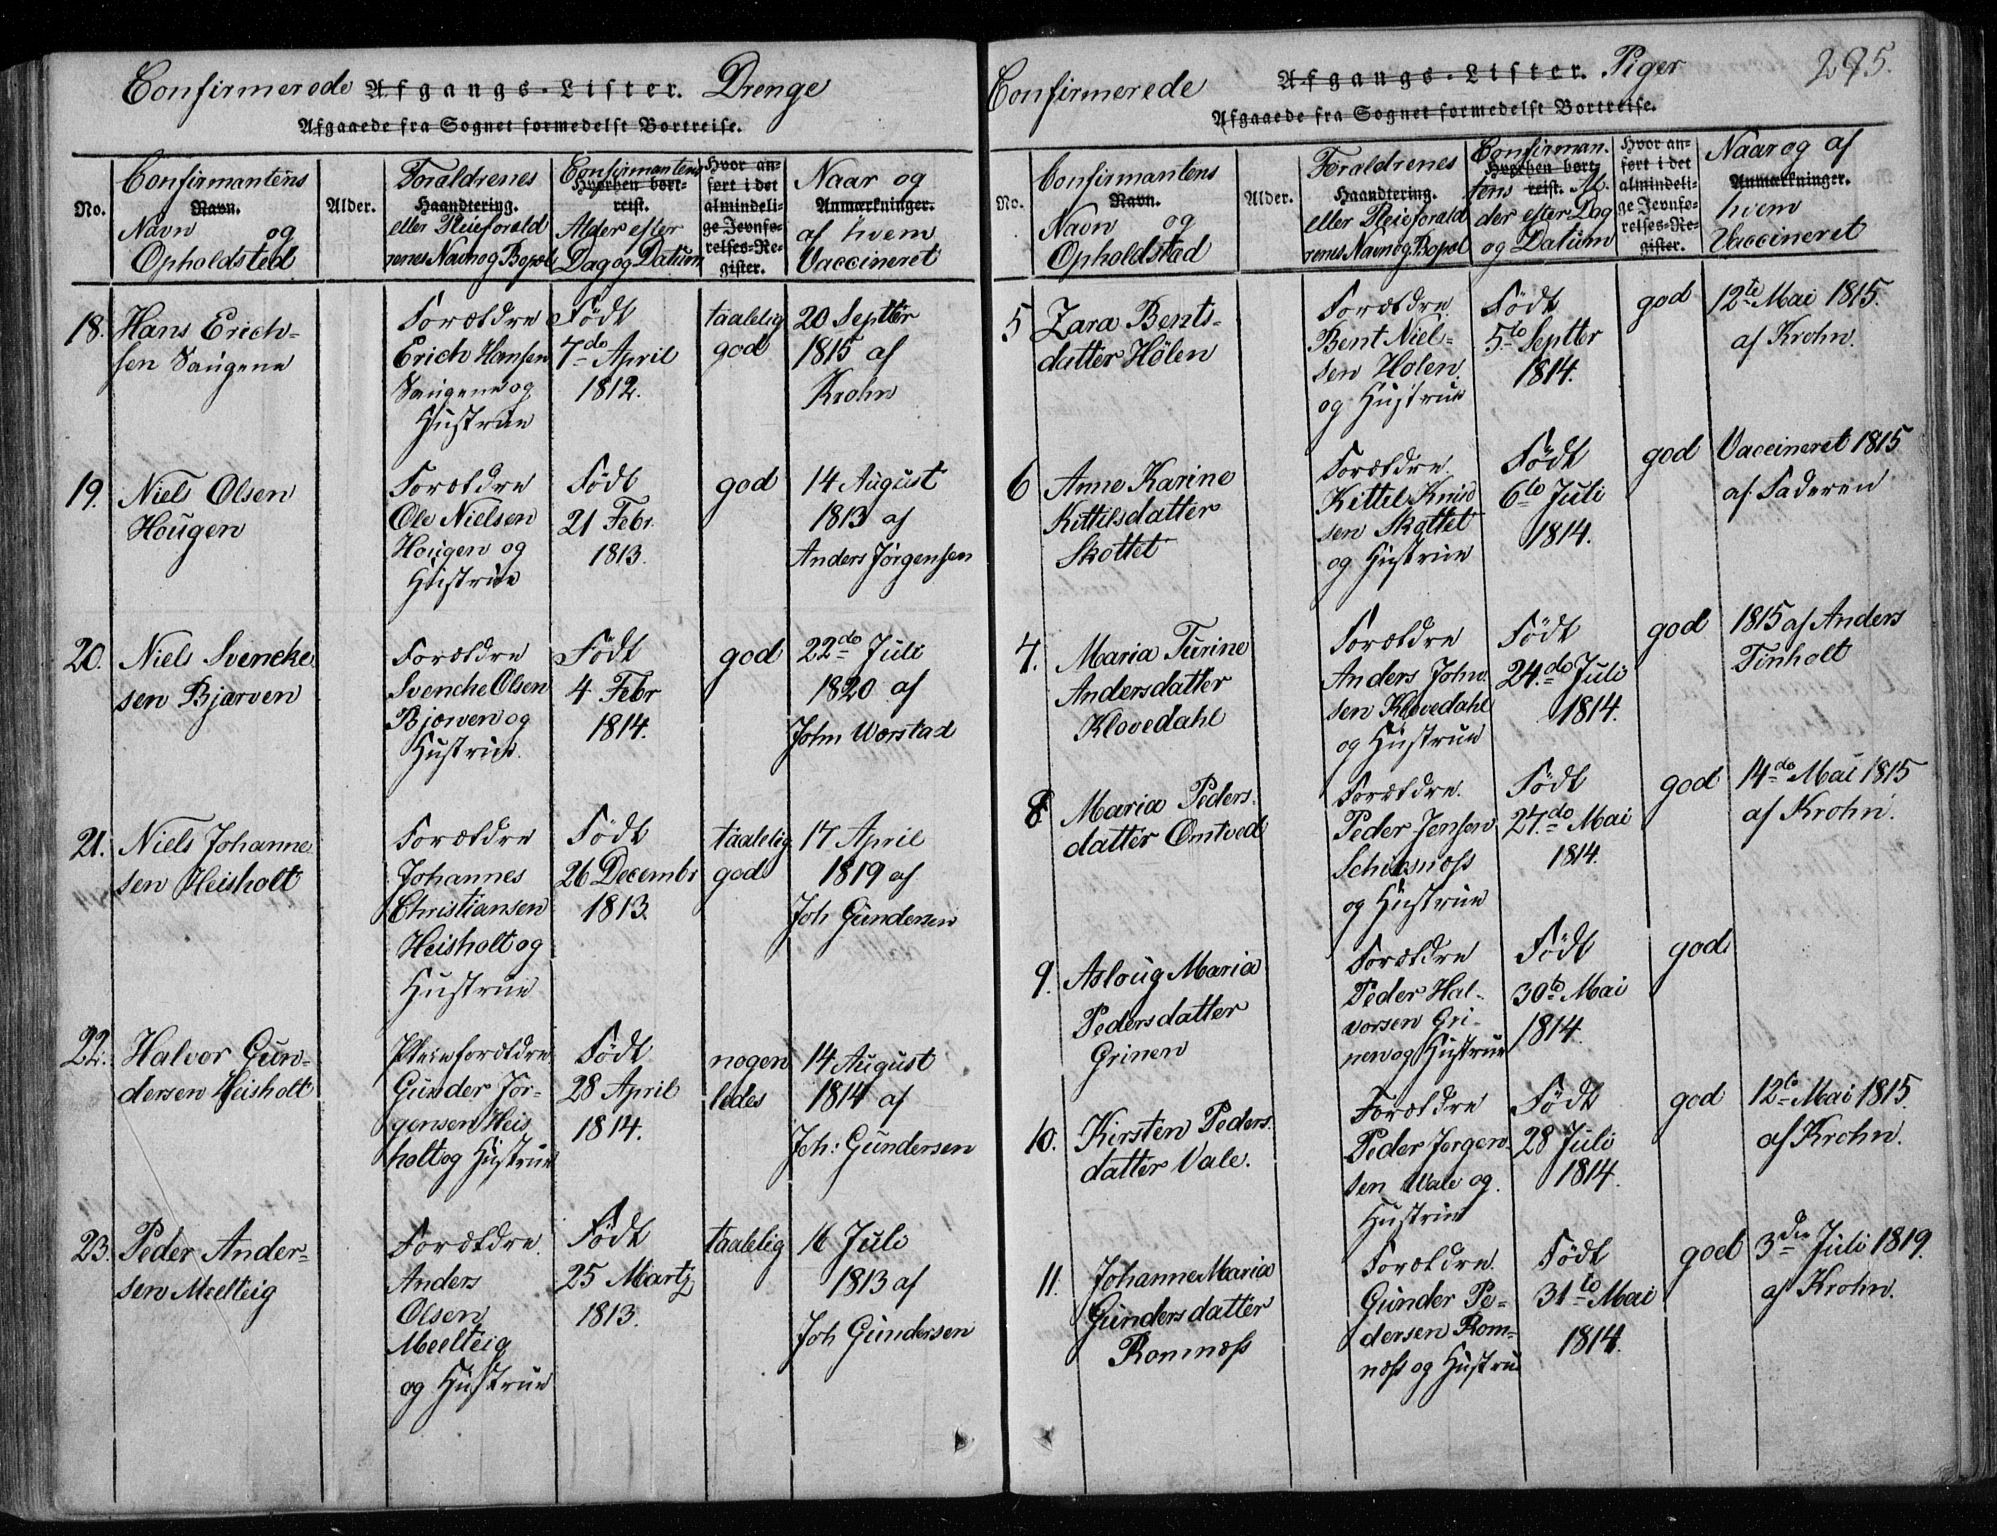 Confirmerede Afgangs-Lister. Drenge
Afgaaede fra Sognet formedelst Bortreise.
No.
Confirmantens
Navn.
Navn og
Opholdsted
Alder.
Foraldrenes
Haandtering.
eller Pleieforald
renes Navn og Bopæl
Confirmantens
Hvorhen bort-
reist.
Alder efter
Dag og Datum
Hvor an-
ført i det
almindeli-
ge Jevnfø-
relses-Re-
gister.
Naar og
Anmærkninger.
af hvem
Vaccineret
18. Hans Erich-
sen Saugene
Forældre
Erich Hansen
Saugene og
Hustrue
Født
7de April
1812.
taalelig
god
20 Septbr
1815 af
Krohn
19. Niels Olsen
Hougen
Forældre
Ole Nielsen
Hougen og
Hustrue
Født
21 Febr.
1813.
god
14 August
1813 af
Anders Jørgensen
20. Niels Svencke
sen Bjærven
Forældre
Svenche Olsen
Bjærven og
Hustrue.
Født
4 Febr
1814.
god
22de Juli
1820 af
John Worstad
21. Niels Johanne
sen Heisholt
Forældre
Johannes
Christiansen
Heisholt og
Hustrue
Født
26 Decembr
1813.
taalelig
god
17 April
1819 af
Joh Gundersen
22. Halvor Gun-
dersen Heisholt
Pleieforældre
Gunder Jør-
gensen Heis
holt og Hustrue
Født
28 April
1814.
nogen
ledes
14 August
1814 af
Joh: Gundersen
23. Peder Ander-
sen Meelteig
Forældre.
Anders
Olsen
Meelteig
og Hustrue
Født
25 Martz
1813.
taalelig
16 Juli
1813 af
Joh Gundersen
295.
Confirmerede Afgangs-Lister. Piger
Afgaaede fra Sognet formedelst Bortreise.
No.
Confirmantens
Navn.
Navn og
Opholdstad
Alder.
Foraldrenes
Haandtering.
eller Pleieforald
renes Navn og Bopæl
Confirman.
Hvorhen bort-
tens reist. Al.
der efter Dag
og Datum
Hvor an-
ført i det
almindeli-
ge Jevnfø-
relses-Re-
gister.
Naar og af
Anmærkninger.
hvem
Vaccineret
5 Zara Bents-
datter Hølen
Forældre.
Bent Niel-
sen Holen.
og Hustrue
Født
5te Septbr
1814.
god
12te Mai 1815.
af Krohn.
6 Anne Karine
Kittilsdatter
Skottet
Forældre.
Kittil Knud
sen Skottet
og Hustrue
Født
6te Juli
1814.
god
Vaccineret 1815
af Faderen
7. Maria Turine
Andersdatter
Klovedahl
Forældre
Anders John.
sen Klovedahl
og Hustrue
Født
24.de Juli
1814.
god
1815 af Anders
Tinholt
8. Maria Peders.
datter Omtved
Forældre.
Peder Jensen
og Hustrue
Født
27.de Mai
1814.
god
14de Mai 1815
af Krohn.
9. Asloug Maria
Pedersdatter
Grinen
Forældre
Peder Hal-
vorsen Gri-
nen og Hustrue
Født
30te Mai
1814.
god
10. Kirsten Peders.
datter Vale.
Forældre
Peder Jørgen.
sen Wale og.
Hustrue
Født
28 Juli
1814.
god
12te Mai 1815.
af Krohn.
11. Johanne Maria
Gundersdatter
Romnæss
Forældre.
Gunder Pe-
dersen Rom-
næss og Hustrue
Født
31te Mai
1814.
god
3die Juli 1819.
af Krohn.